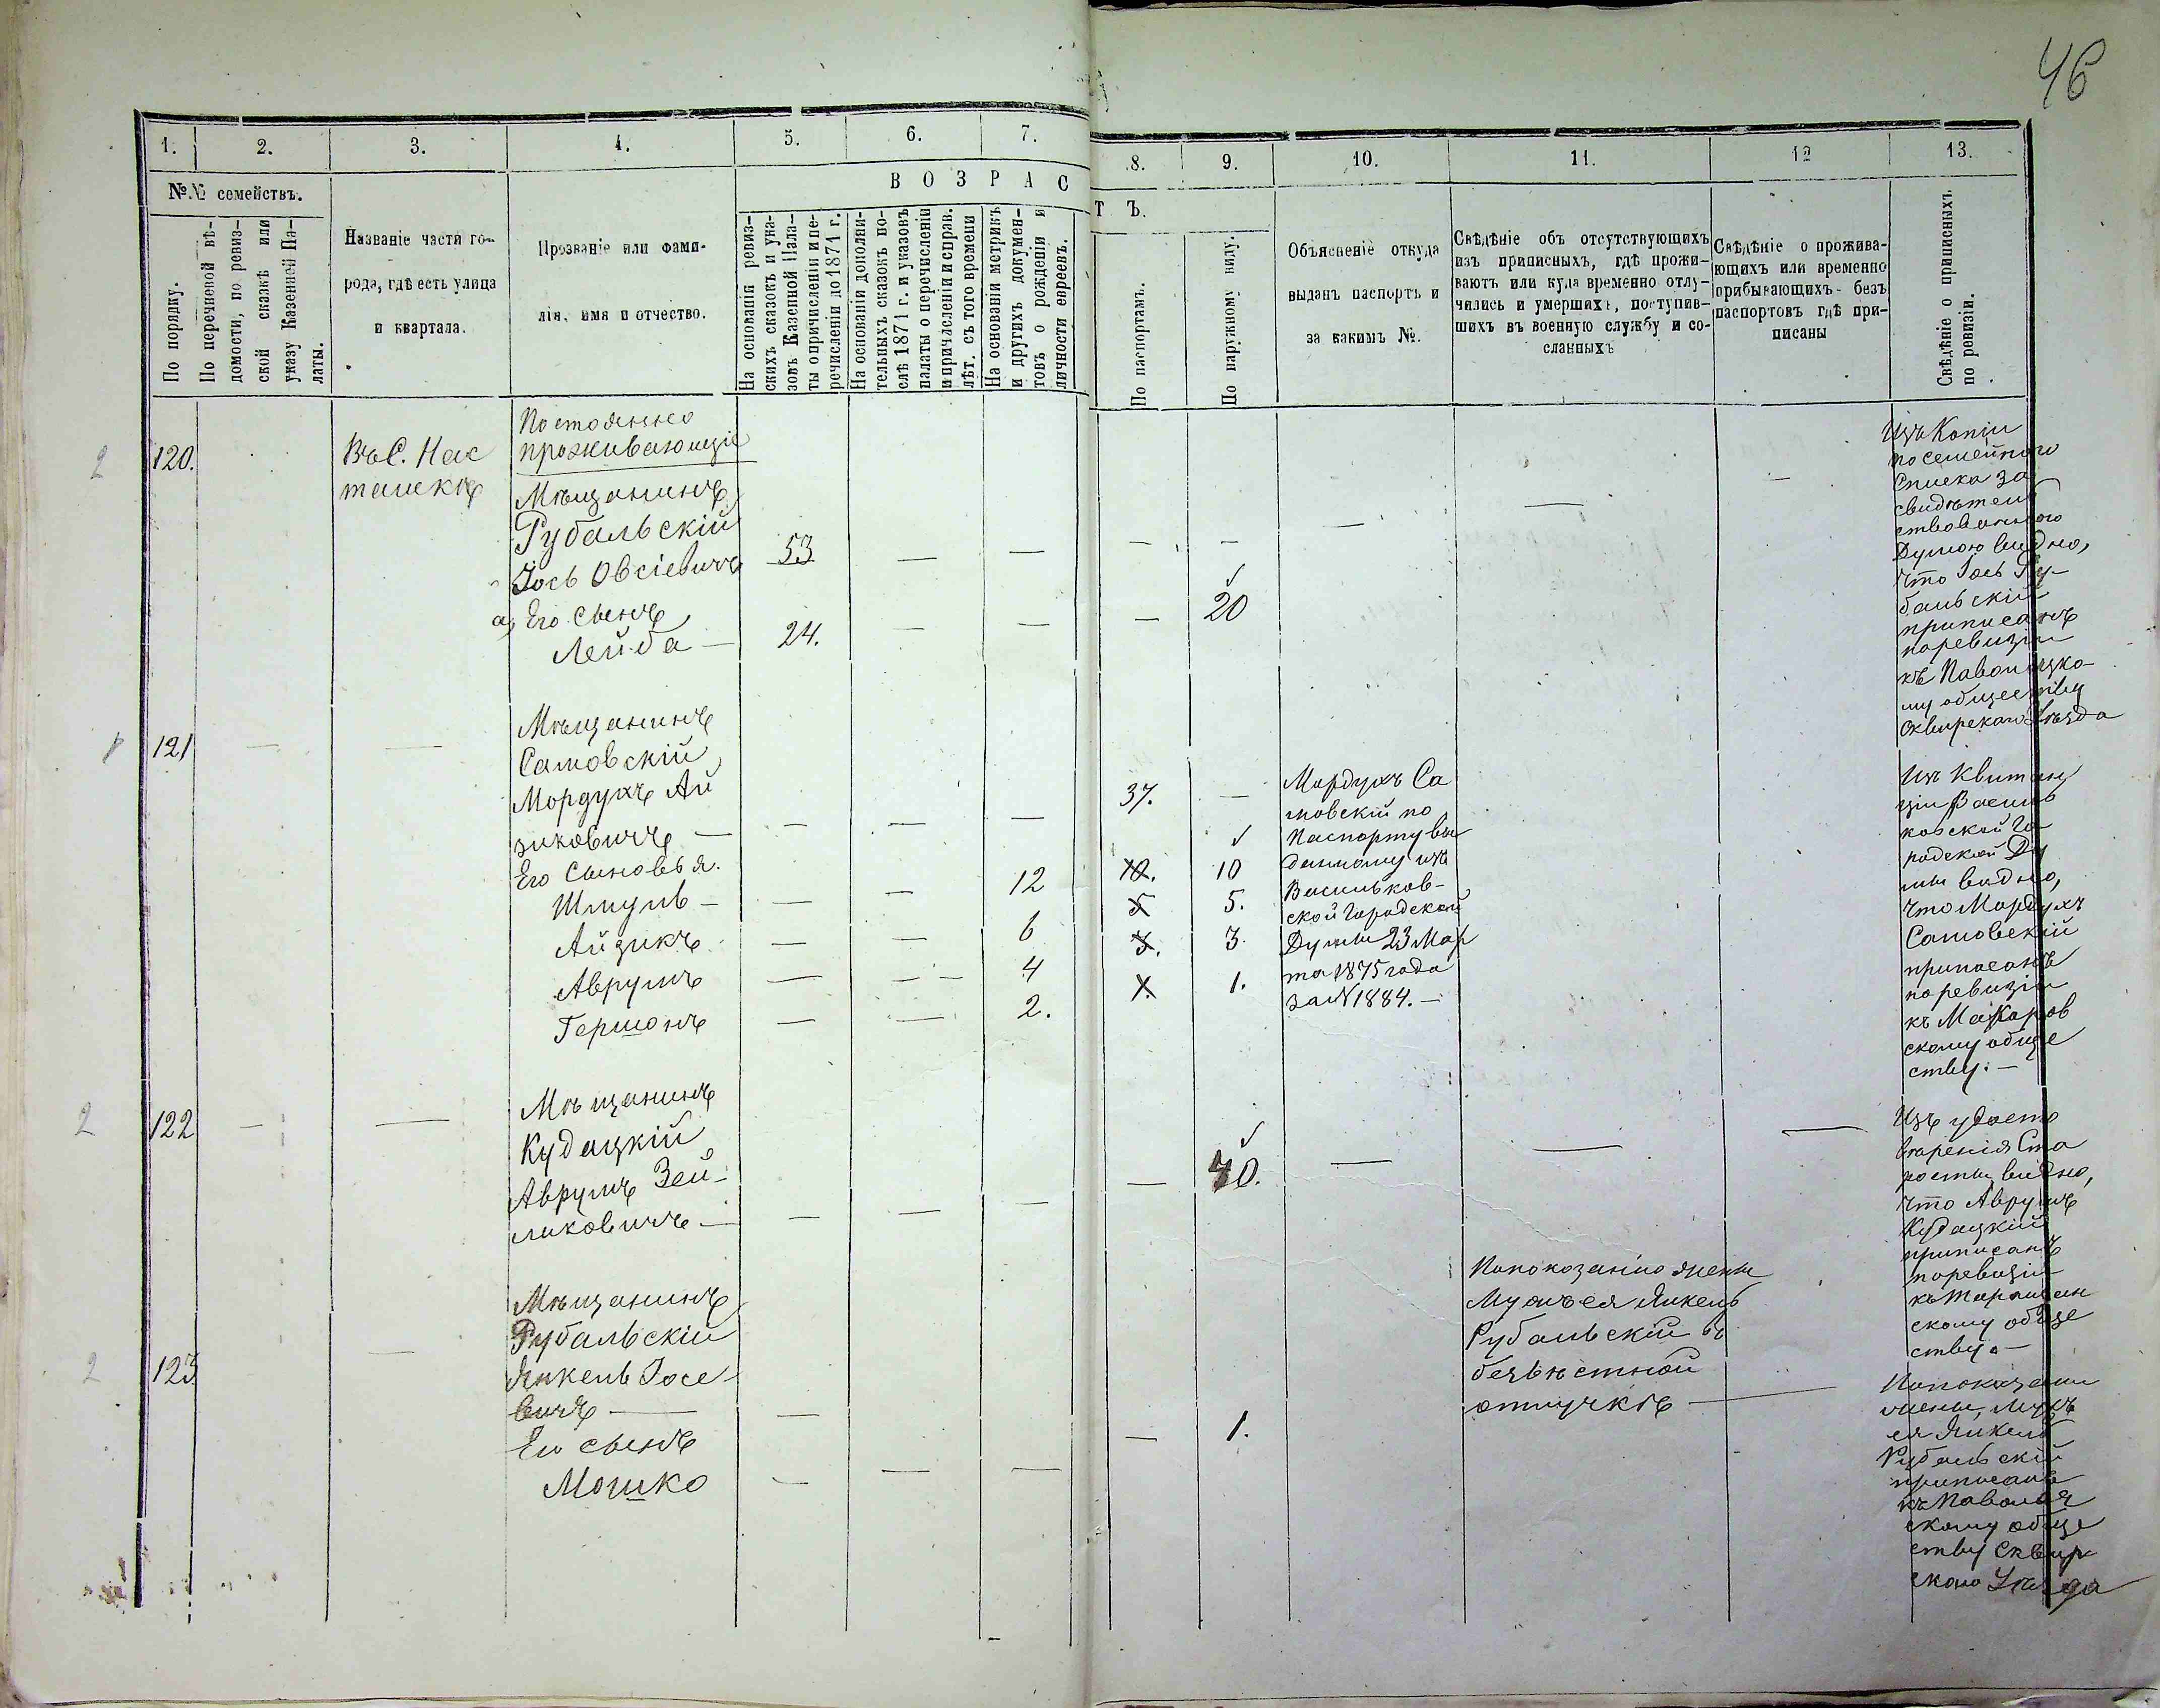 46
1. 2. 3. 4. 5. 6. 7. 8. 9. 10. 11. 12 13.
№.№ семействъ.
По порядку.
По перечневой вѣ-
домости, по ревиз-
ской сказкѣ или
указу Казенной Па-
латы.
Названіе части го-
рода, гдѣ есть улица
и квартала.
Прозваніе или фами-
лія, имя и отчество.
ВОЗРАСТЪ.
На основаніи ревиз-
скихъ сказокъ и ука-
зовъ Казенной Пала-
ты о причисленіи и пе-
речисленіи до 1871 г.
На основаніи дополни-
тельныхъ сказокъ по-
слѣ 1871 г. и указовъ
палаты о перечисленіи
и причисленіи и справ.
лѣт. съ того времени
На основаніи метрикъ
и другихъ докумен-
товъ о рожденіи и
личности евреевъ.
По паспортамъ.
По наружному виду.
Объясненіе откуда
выданъ паспортъ и
за какимъ №.
Свѣдѣніе объ отсутствующихъ
изъ приписныхъ, гдѣ прожи-
ваютъ или куда временно отлу-
чились и умершихъ, поступив-
шихъ въ военную службу и со-
сланныхъ
Свѣдѣніе о прожива-
ющихъ или временно
прибывающихъ безъ
паспортовъ гдѣ при-
писаны
Свѣдѣніе о приписныхъ
по ревизіи.
2 120.
Въ С. Нас
ташкѣ
Постоянно
проживающіе
Мѣщанинъ
Рубальскій
Іось Овсіевичъ 53 — — — — — — —
а, Его сынъ
Лейба — 24. — — — 20
Изъ Копіи
посемейного
Списка за
свидѣтель
ствованного
Думою видно,
что Іось Ру-
бальскій
приписанъ
поревизіи
къ Паволоцко-
му обществу
Сквирскаго Уѣзда
1 121 — —
Мѣщанинъ
Самовскій
Мордухъ Ай
зиковичъ — — — — 37. —
Его Сыновья.
Шмуль — — — 12 10. 10
Айзикъ — — 6 5 5.
Аврумъ — — 4 3. 3
Гершонъ — — 2. 1. 1.
Мордухъ Са
мовскій по
Паспорту вы
данному изъ
Васильков-
ской Городской
Думы 23 Мар
та 1875 года
за № 1884. —
Изъ Квитан
ціи Василь
ковской Го
родской Ду
мы видно,
что Мордухъ
Самовскій
приписанъ
поревизіи
къ Макаров
скому обще
ству. —
2 122 — —
Мѣщанинъ
Кудацкій
Аврумъ Зей-
ликовичъ — — — — — 40. — — —
Изъ удосто
веренія Ста
росты видно,
что Аврумъ
Кудацкій
приписанъ
поревизіи
къ Таращан
скому обще
ству —
2 123 —
Мѣщанинъ
Рубальскій
Янкель Іосе-
вичъ — —
Его сынъ
Мошко — — — — 1.
Попоказанію жены
Мужъ ея Янкель
Рубальскій въ
безвѣстной
отлучкѣ —
Попоказанію
жены, мужъ
ея Янкель
Рубальскій
приписанъ
къ Паволоч
скому обще
ству Сквир
скаго Уѣзда